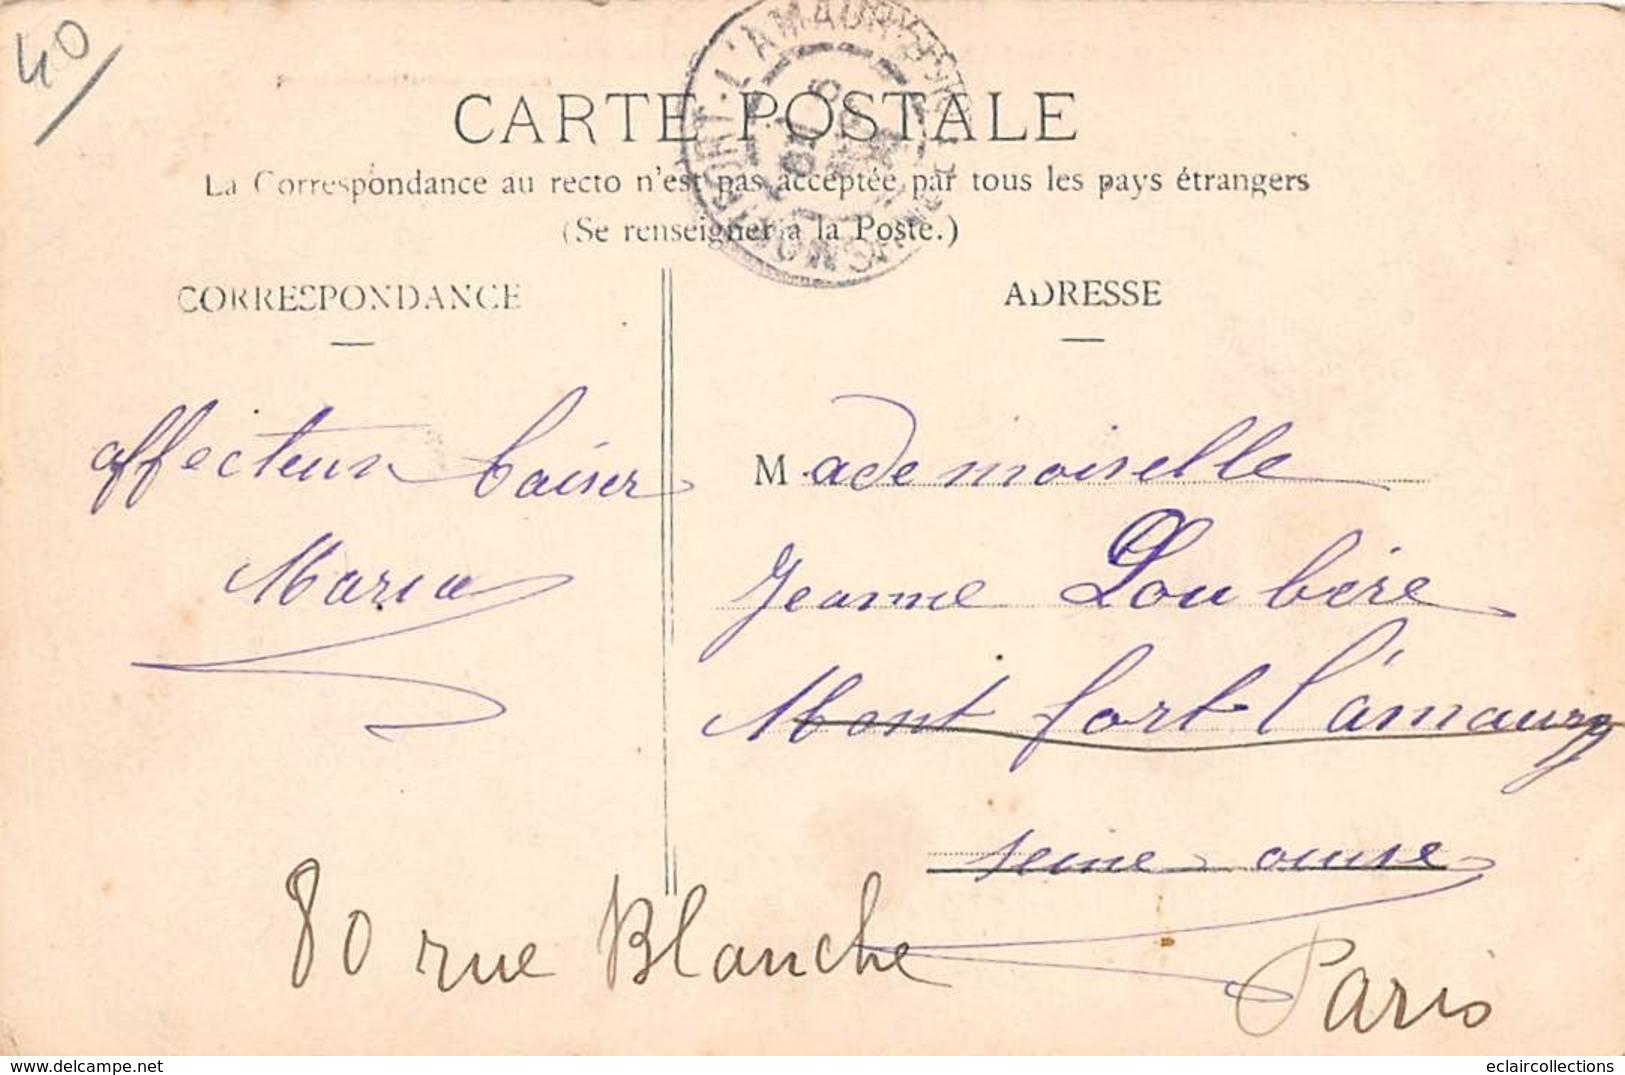 40
MONTFORT-L'AMAURY
CARTE POSTALE
La Correspondance au recto n'est pas acceptée par tous les pays étrangers
(Se renseigner à la Poste.)
CORRESPONDANCE
ADRESSE
affecteux baiser
Maria
Mademoiselle
Jeanne Loubère
Montfort l'amaury
seine oise
80 rue Blanche
Paris
eclaircollections